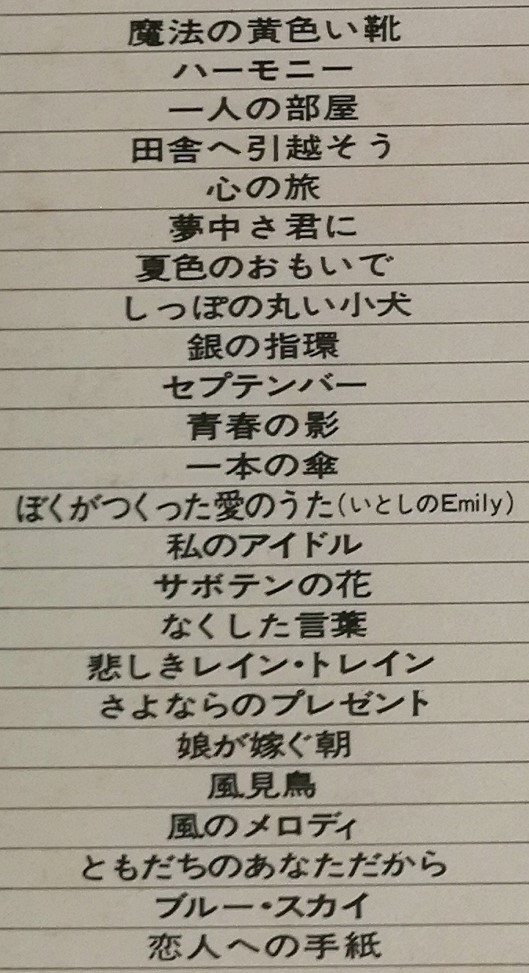 魔法の黄色い靴
ハーモニー
一人の部屋
田舎へ引越そう
心の旅
夢中さ君に
夏色のおもいで
しっぽの丸い小犬
銀の指環
セプテンバー
青春の影
一本の傘
ぼくがつくった愛のうた(いとしのEmily)
私のアイドル
サボテンの花
なくした言葉
悲しきレイン・トレイン
さよならのプレゼント
娘が嫁ぐ朝
風見鳥
風のメロディ
ともだちのあなただから
ブルー・スカイ
恋人への手紙